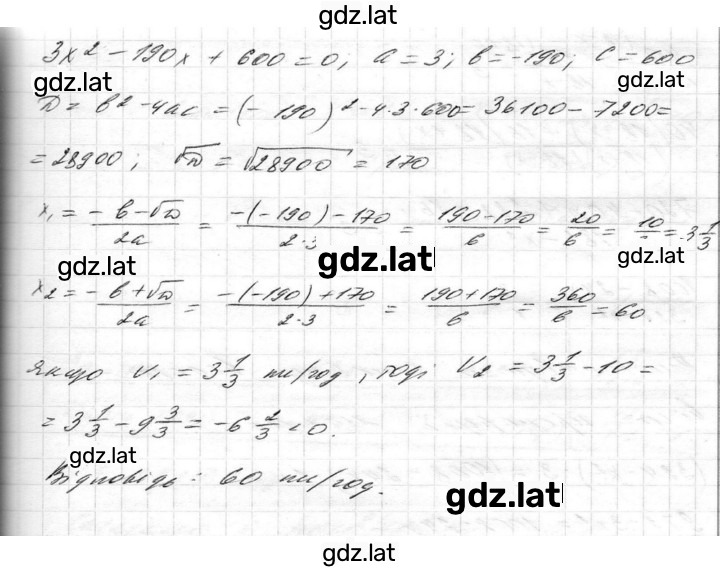 gdz.lat
3x² - 190x + 600 = 0; a = 3; b = -190; c = 600
gdz.lat gdz.lat
D = b² - 4ac = (-190)² - 4·3·600 = 36100 - 7200 =
= 28900; √D = √28900 = 170
x₁ = (-b - √D)/(2a) = (-(-190) - 170)/(2·3) = (190 - 170)/6 = 20/6 = 10/ = 3 1/3
gdz.lat gdz.lat gdz.lat
x₂ = (-b + √D)/(2a) = (-(-190) + 170)/(2·3) = (190 + 170)/6 = 360/6 = 60.
якщо V₁ = 3 1/3 км/год, тоді V₂ = 3 1/3 - 10 =
= 3 1/3 - 9 3/3 = -6 2/3 < 0.
gdz.lat
Відповідь: 60 км/год.
gdz.lat
gdz.lat